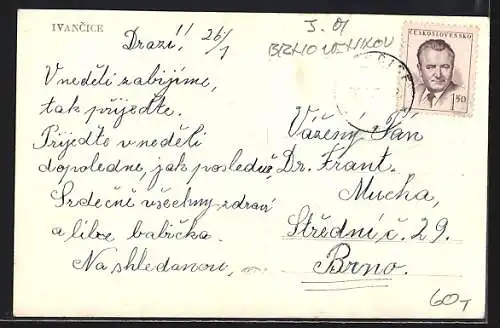 IVANČICE
Drazí!! 26/1
V neděli zabijíme,
tak přijeďte.
Přijeďte v neděli
dopoledne, jak posledně,
Srdečně všechny zdraví
a líbe babička.
Na shledanou,
J. 01
BRNO
ČESKOSLOVENSKO
1.50
Vážený Pán
Dr. Frant.
Mucha,
Střední č. 29.
Brno.
60,-